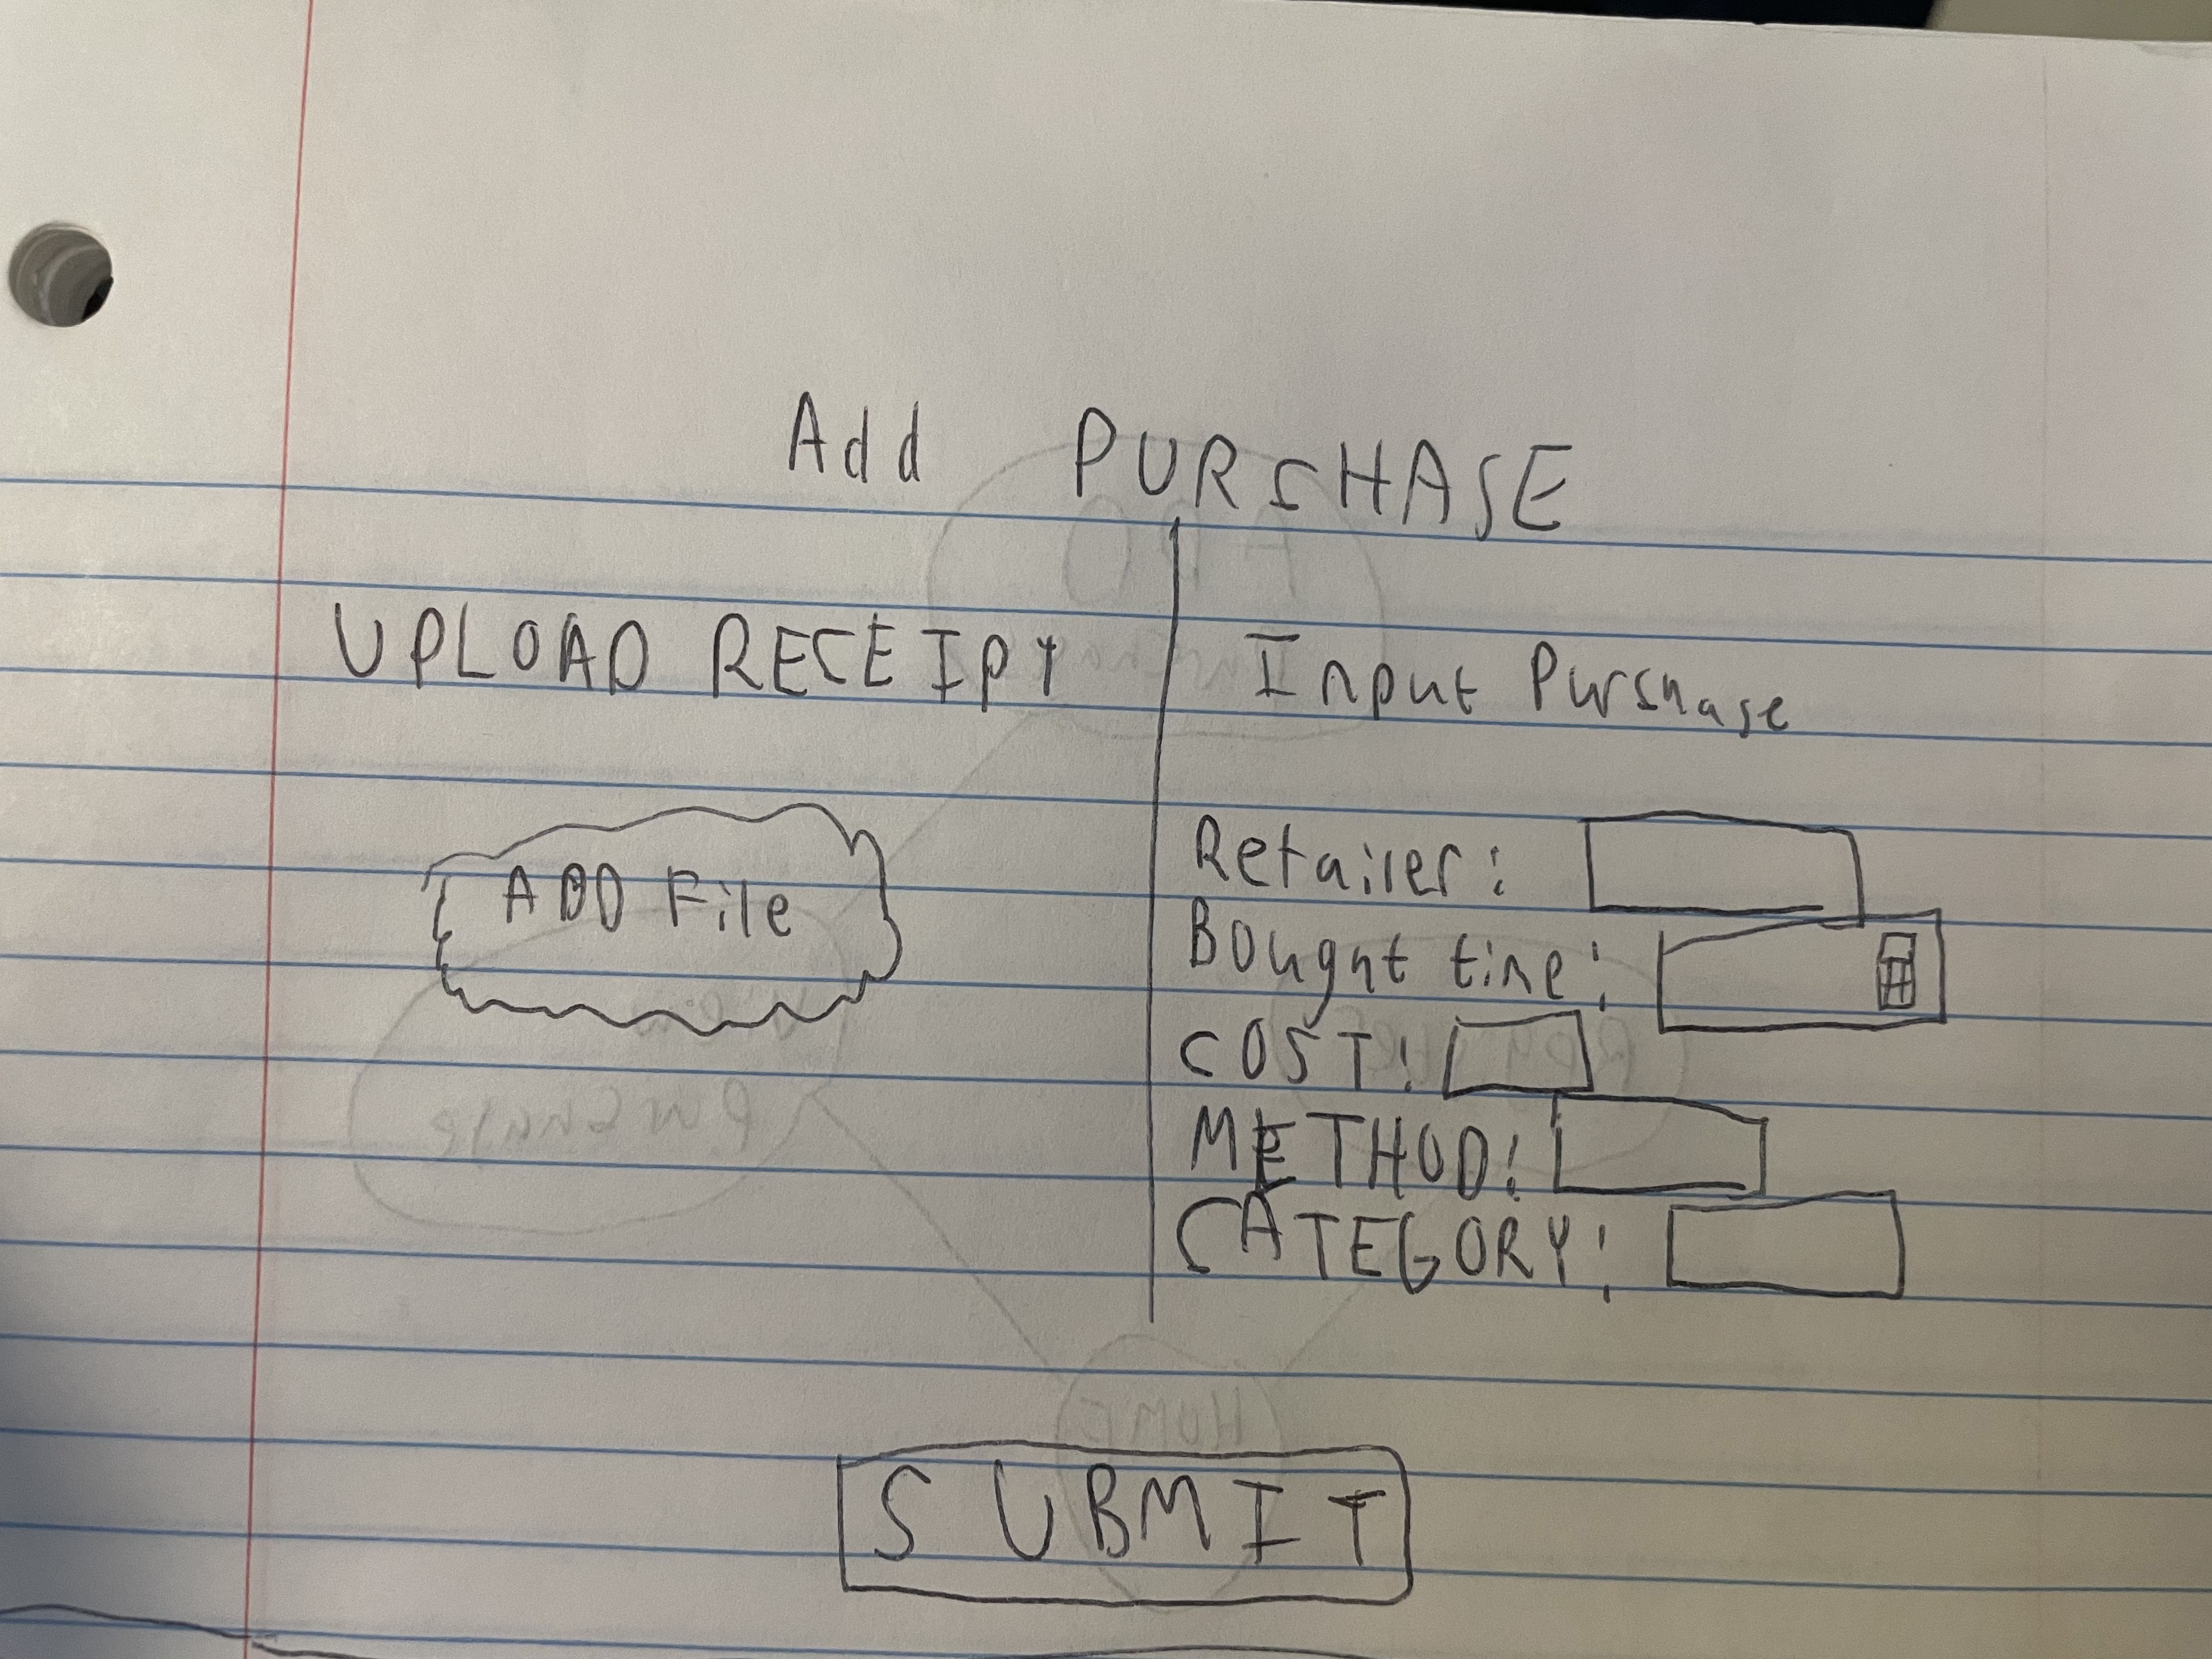 Add PURCHASE
UPLOAD RECEIPT
ADD File
Input Purchase
Retailer:
Bought time:
COST:
METHOD:
CATEGORY:
SUBMIT
HOME
View
Purchase